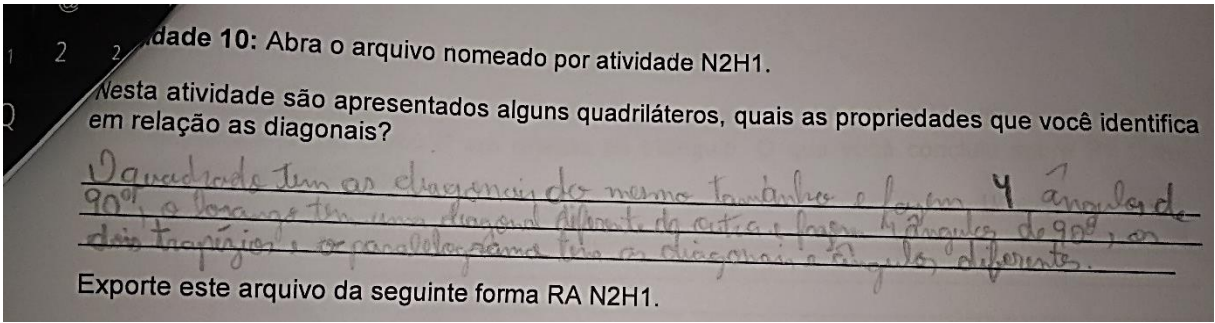 1 2 2 dade 10: Abra o arquivo nomeado por atividade N2H1.
Nesta atividade são apresentados alguns quadriláteros, quais as propriedades que você identifica
em relação as diagonais?
O quadrado tem as diagonais do mesmo tamanho e fazem 4 ângulos de
90º, o losango tem uma diagonal diferente da outra e fazem 4 ângulos de 90º, os
dois trapézios e o paralelograma tem as diagonais e ângulos diferentes.
Exporte este arquivo da seguinte forma RA N2H1.